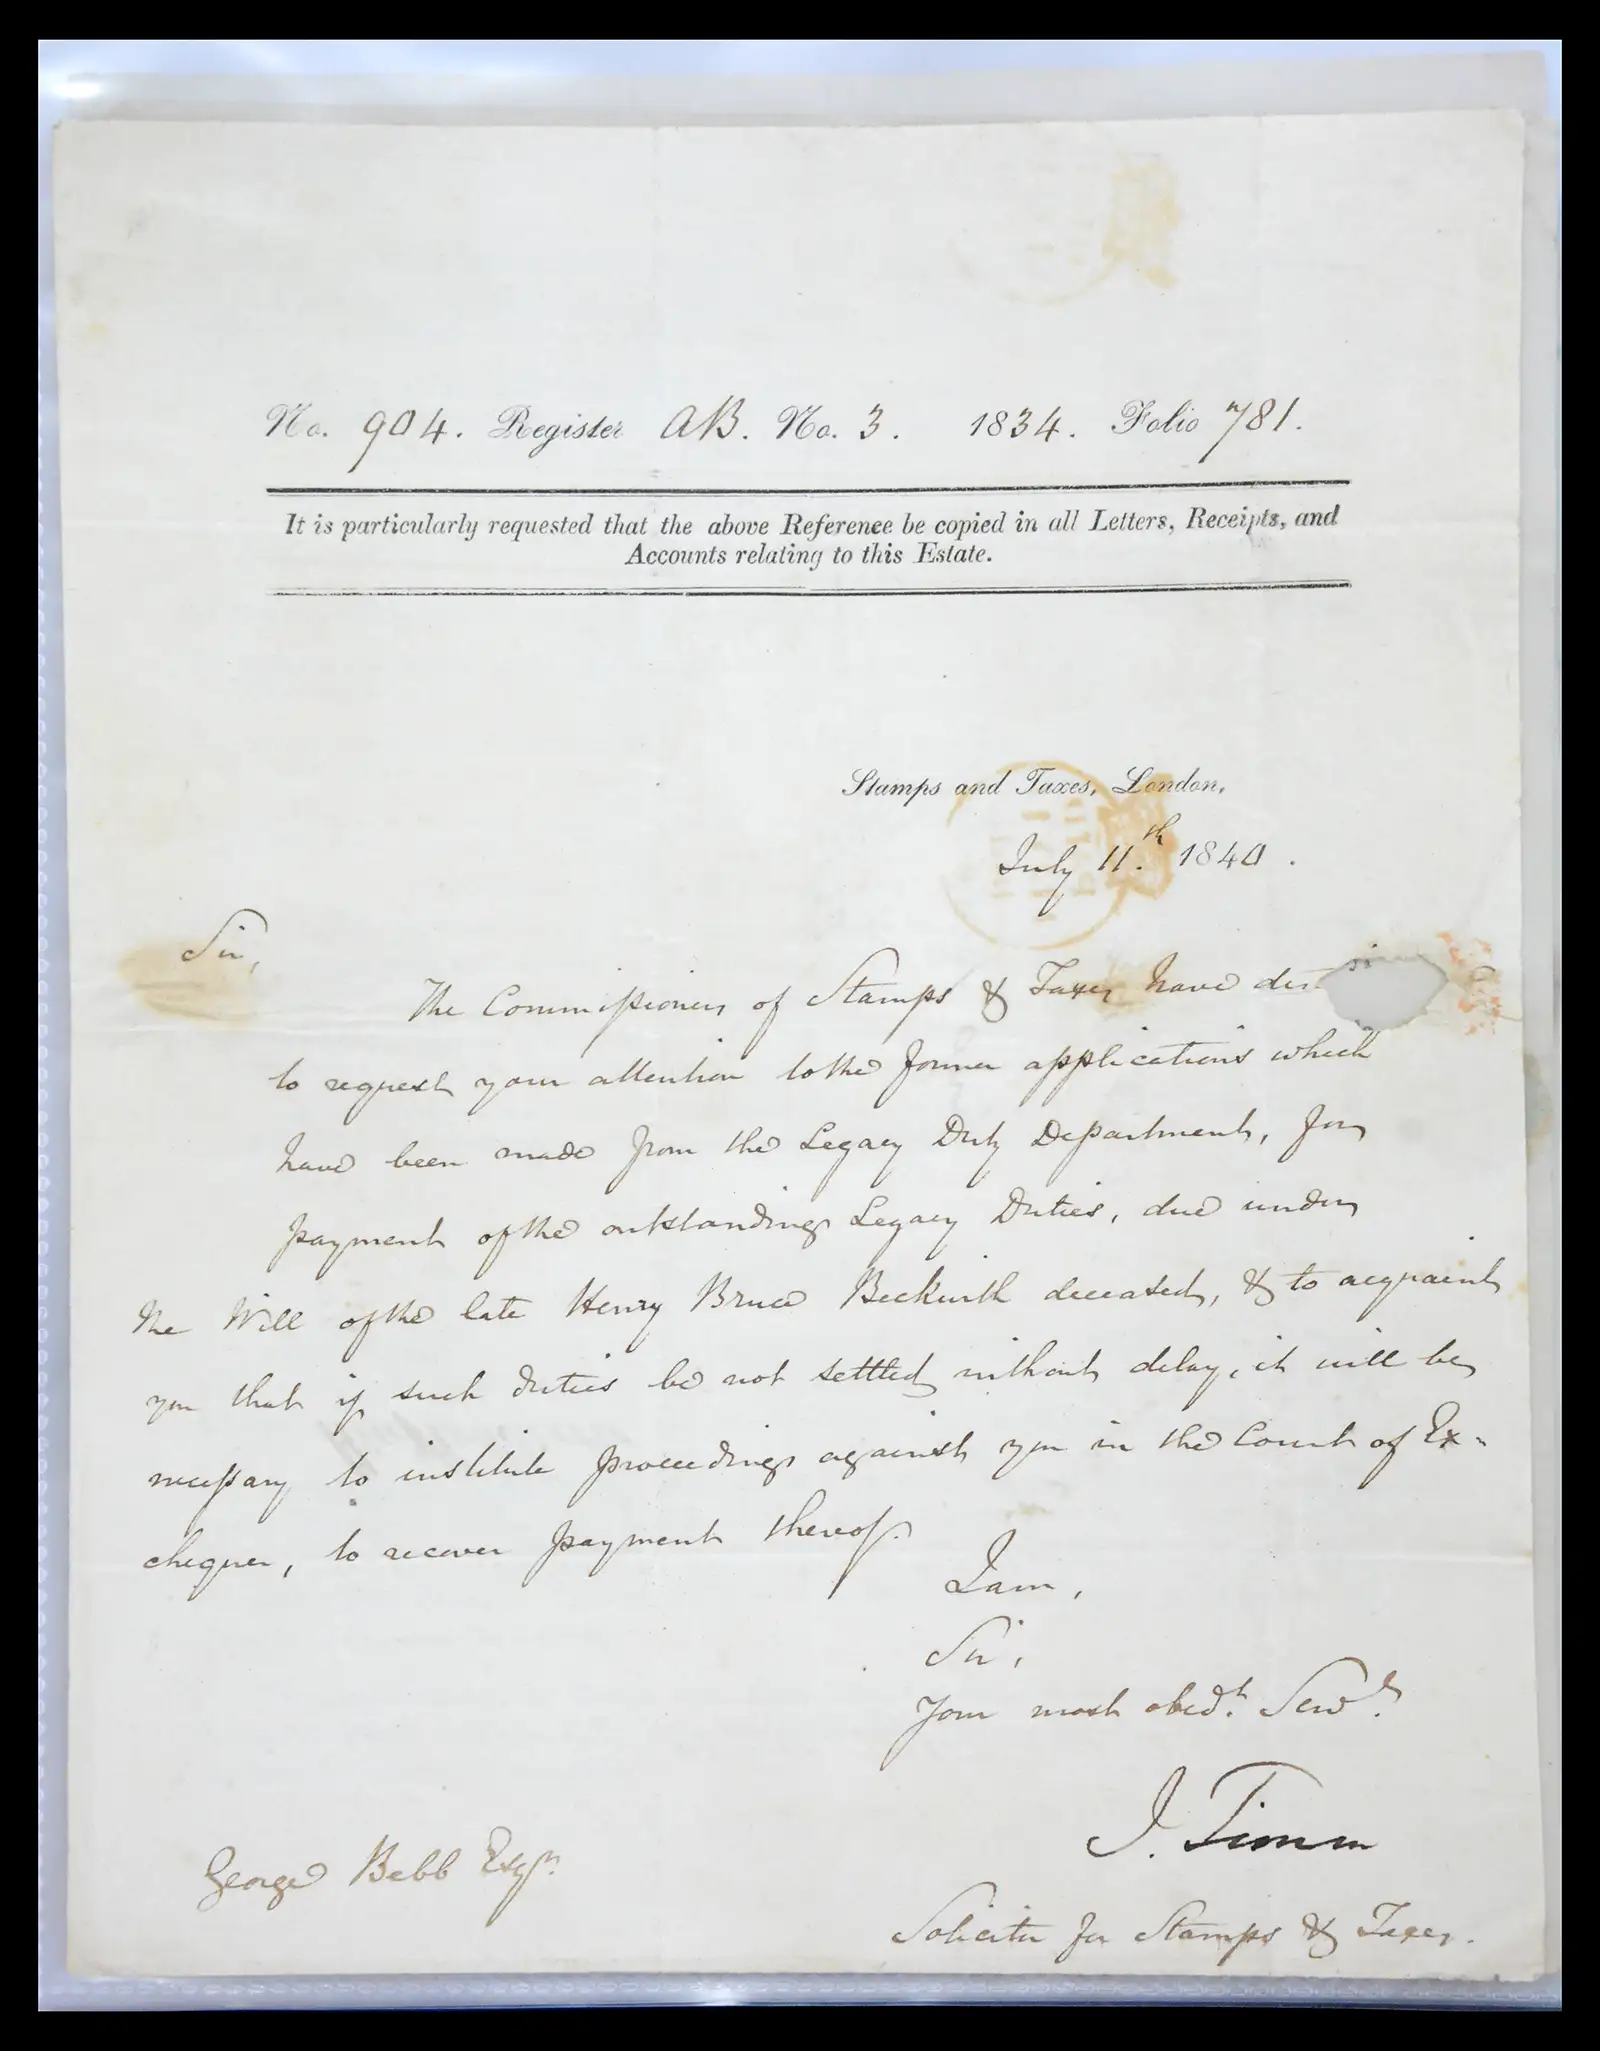 No. 904. Register AB. No. 3. 1834. Folio 781.
It is particularly requested that the above Reference be copied in all Letters, Receipts, and
Accounts relating to this Estate.
Stamps and Taxes, London,
July 11.th 1840.
Sir,
The Commissioners of Stamps & Taxes have
to request your attention to the former applications which
have been made from the Legacy Duty Department, for
payment of the outstanding Legacy Duties, due under
the Will of the late Henry Bruce Beckwith deceased, & to acquaint
you that if such duties be not settled without delay, it will be
necessary to institute proceedings against you in the Court of Ex-
chequer, to recover payment thereof.
I am,
Sir,
Your most obedt. Servt.
J. Timm
George Bebb Esqr.
Solicitor for Stamps & Taxes.